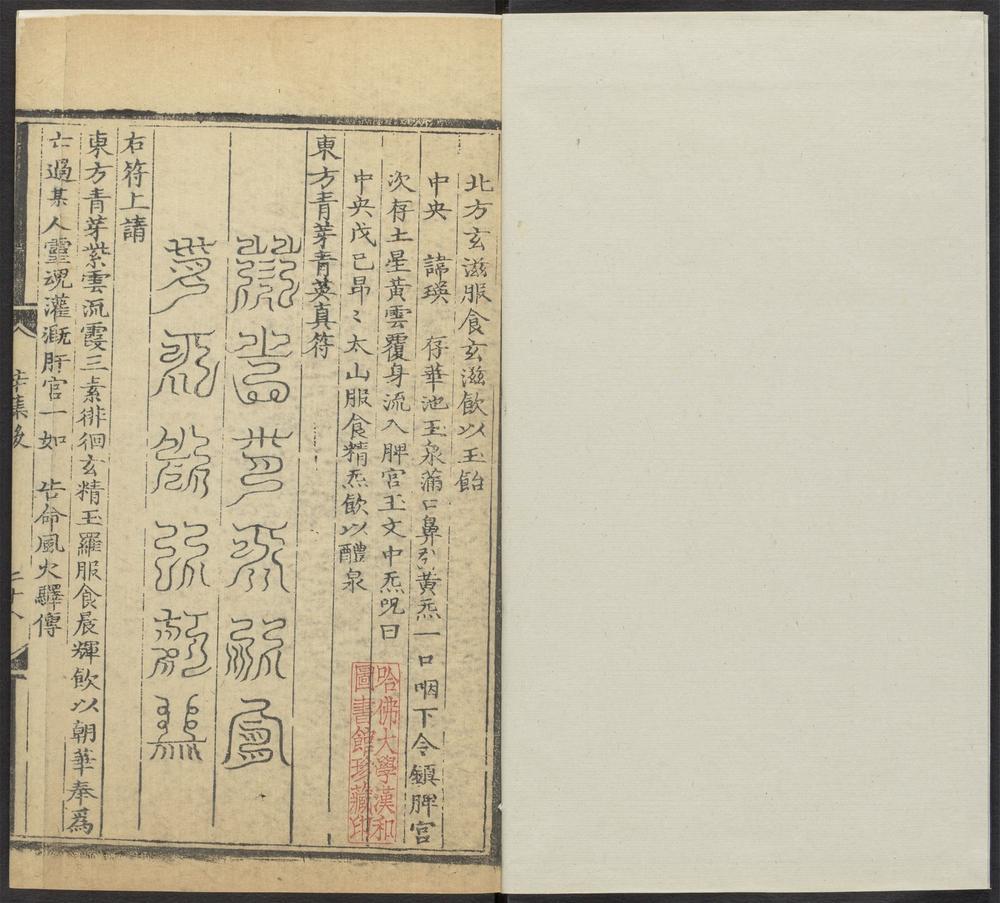 北方玄滋服食玄滋飲以玉飴
中央　諱瑛　存華池玉泉滿口鼻引黃炁一口咽下令鎮脾宮
次存土星黃雲覆身流入脾宮玉文中炁咒曰
中央戊己昂〻太山服食精炁飲以醴泉
東方青芽青英真符
右符上請
東方青芽紫雲流霞三素徘徊玄精玉羅服食晨輝飲以朝華奉爲
亡過某人靈魂灌溉肝宮一如　告命風火驛傳
辛集後
二十八
哈佛大學漢和
圖書館珍藏印